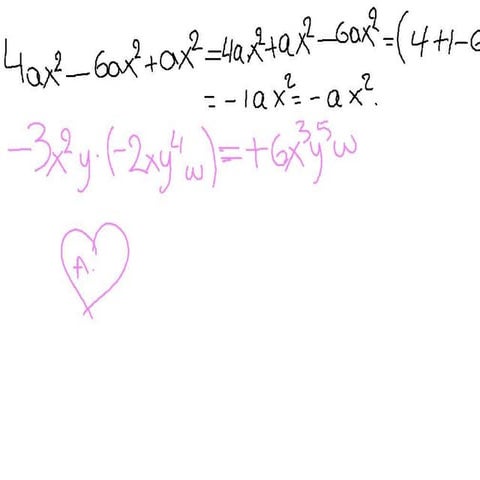 4ax²-6ax²+ax²=4ax²+ax²-6ax²=(4+1-6
=-1ax²=-ax².
-3x²y·(-2xy⁴w)=+6x³y⁵w
A.